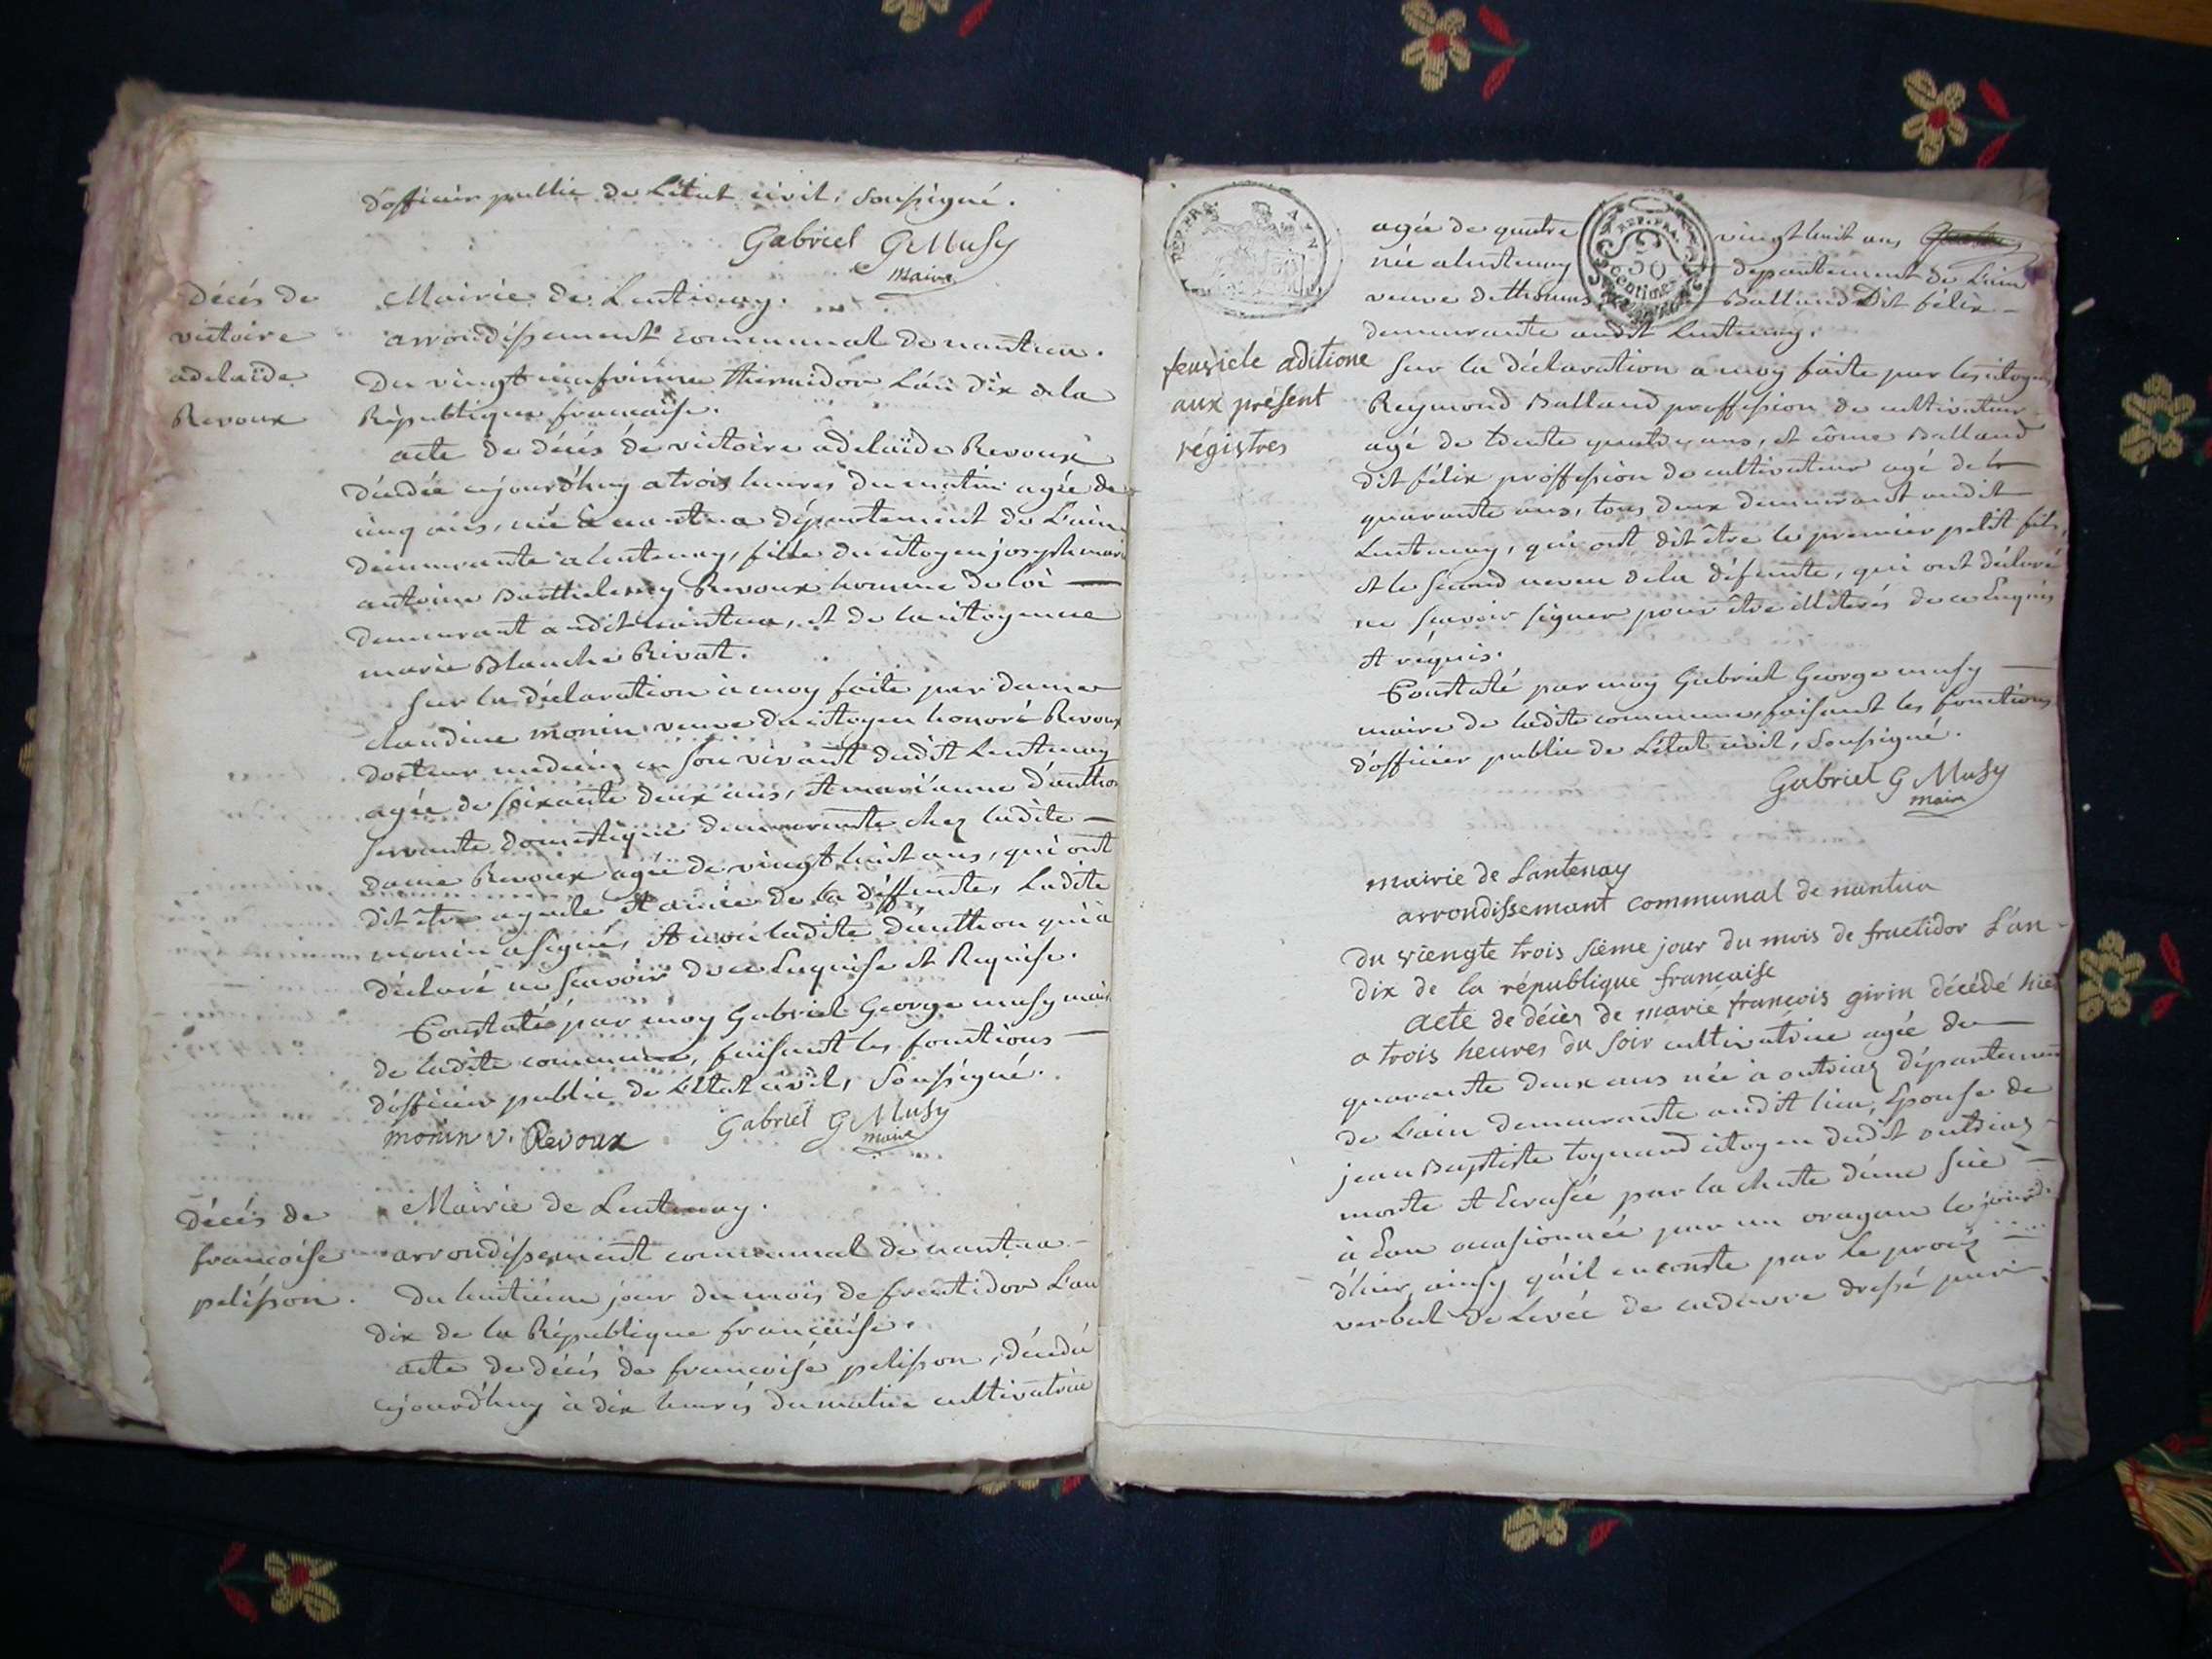 d'officier public de L'état civil, soussigné.
Gabriel G Musy
maire
décés de
victoire
adelaïde
Revoux
Mairie de Lentenay.
arrondissement communal de nantua.
Du vingt neufvième thermidor L'an dix de la
République francaise.
acte de décés de victoire adelaïde Revoux
décédée ajourd'huy a trois heures du matin agée de
cinq ans, née a nantua département de L'ain
demeurante a lentenay, fille du citoyen joseph marie
antoine Barthelemy Revoux homme de loi
demeurant audit nantua, et de la citoyenne
marie Blanche Rivat.
Sur la déclaration à moy faite par dame
claudine monin veuve du citoyen honoré Revoux
docteur medecin en son vivant dudit Lentenay
agée de soixante deux ans, et marianne d'anthon
servante domestique demeurante chez ladite
dame Revoux agée de vingt huit ans, qui ont
dit être ayeule et amie de la déffunte, Ladite
monin a signé, et non ladite d'anthon qui a
déclaré ne scavoir de ce Enquise et Requise.
Constaté par moy Gabriel George musy maire
de ladite commune, faisant les fonctions
d'officier public de L'état civil, Soussigné.
monin v. Revoux Gabriel G Musy
maire
décés de
francoise
pelisson.
Mairie de Lentenay.
arrondissement communal de nantua
du huitième jour du mois de fructidor L'an
dix de la République francaise.
acte de décés de francoise pelisson, décédée
ajourd'huy à dix heures du matin cultivatrice
REP. FRA.
REP. FRA.
50
centimes
agée de quatre vingt huit ans
née a lentenay département de L'ain
veuve de thomas Balland Dit félix
demeurante audit Lentenay.
feuvicle aditione
aux présent
régistres
Sur la déclaration a moy faite par les citoyens
Reymond Balland proffession de cultivateur
agé de trente quatre ans, et côme Balland
dit félix proffession de cultivateur agé de
quarante ans, tous deux demeurant audit
Lentenay, qui ont dit être le premier petit fils,
et le second neveu de la défunte, qui ont déclaré
ne scavoir signer pour être illitérés de ce Enquis
et réquis.
Constaté par moy Gabriel George musy
maire de ladite commune, faisant les fonctions
d'officier public de L'état civil, Soussigné.
Gabriel G Musy
maire
mairie de Lantenay
arrondissemant communal de nantua
du viengte trois sième jour du mois de fructidor L'an
dix de la république francaise
acte de décès de marie francois girin décédé hier
a trois heures du soir cultivatrice agée de
quarante deux ans née à outriaz département
de L'ain demeurante audit lieu, Epouse de
jean Baptiste toynard citoyen dudit outriaz
morte et Ecrasée par la chute d'une scie
à Eau ocasionnée par un oragan le jour
d'hier, ainsy qu'il en conste par le procés
verbal de Levée de cadavre dressé par